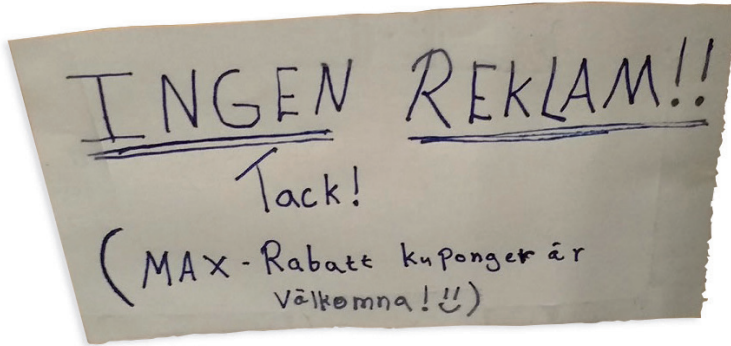 INGEN REKLAM!!
Tack!
(MAX-Rabatt kuponger är
välkomna! !!)